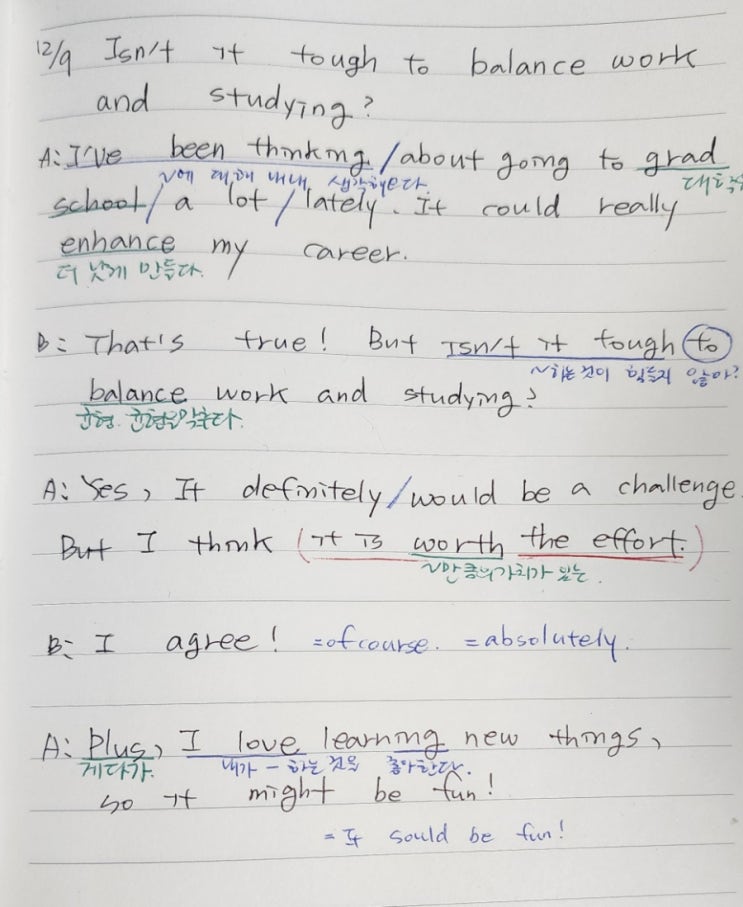 12/9 Isn't it tough to balance work
and studying?
A: I've been thinking / about going to grad
~에 대해 내내 생각해온다. 대학원
school / a lot / lately. It could really
enhance my career.
더 낫게 만들다.
B: That's true! But isn't it tough to
~하는 것이 힘들지 않아?
balance work and studying?
균형. 균형을 맞추다.
A: Yes, It definitely / would be a challenge.
But I think (it is worth the effort.)
~만큼의 가치가 있는.
B: I agree! =of course. =absolutely.
A: Plus, I love learning new things,
게다가. 내가 - 하는 것을 좋아한다.
so it might be fun!
= It sould be fun!